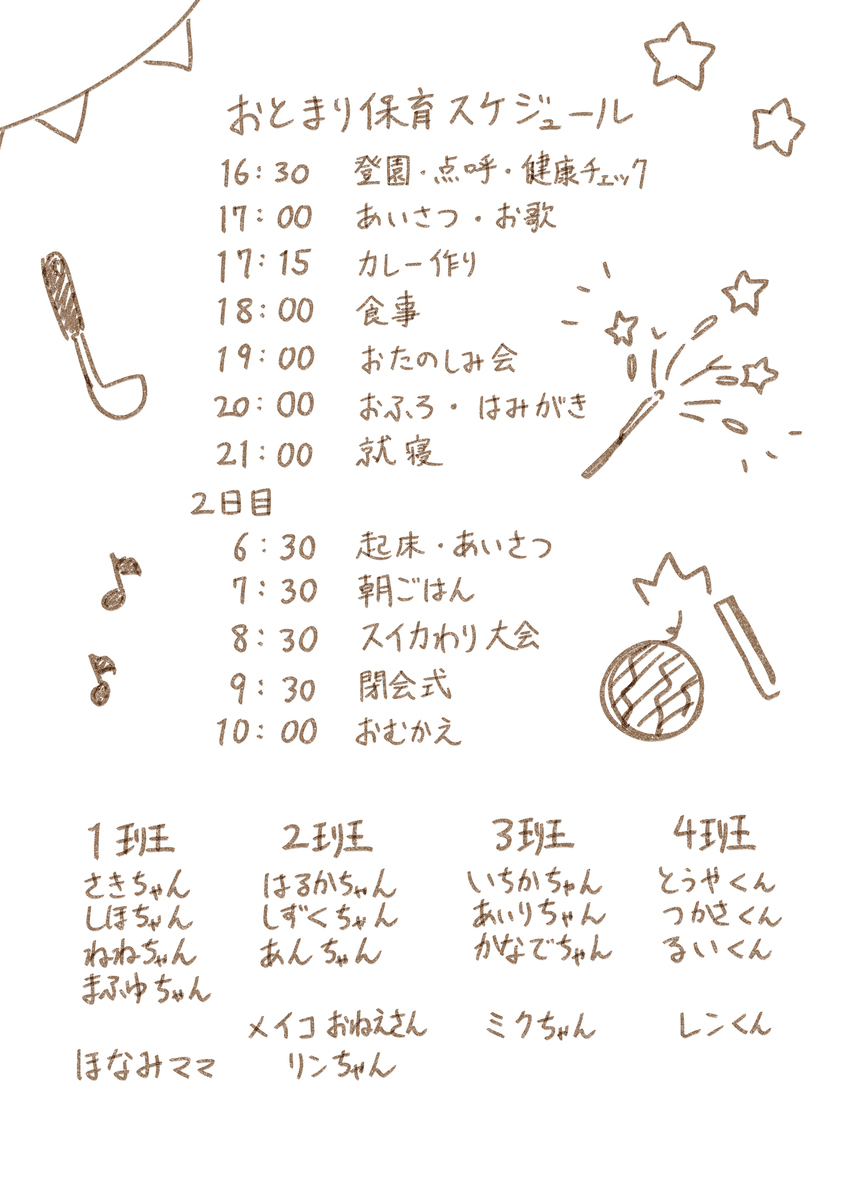 おとまり保育スケジュール
16:30 登園・点呼・健康チェック
17:00 あいさつ・お歌
17:15 カレー作り
18:00 食事
19:00 おたのしみ会
20:00 おふろ・はみがき
21:00 就寝
2日目
6:30 起床・あいさつ
7:30 朝ごはん
8:30 スイカわり大会
9:30 閉会式
10:00 おむかえ
1班 2班 3班 4班
さきちゃん はるかちゃん いちかちゃん とうやくん
しほちゃん しずくちゃん あいりちゃん つかさくん
ねねちゃん あんちゃん かなでちゃん るいくん
まふゆちゃん
メイコおねえさん ミクちゃん レンくん
ほなみママ リンちゃん